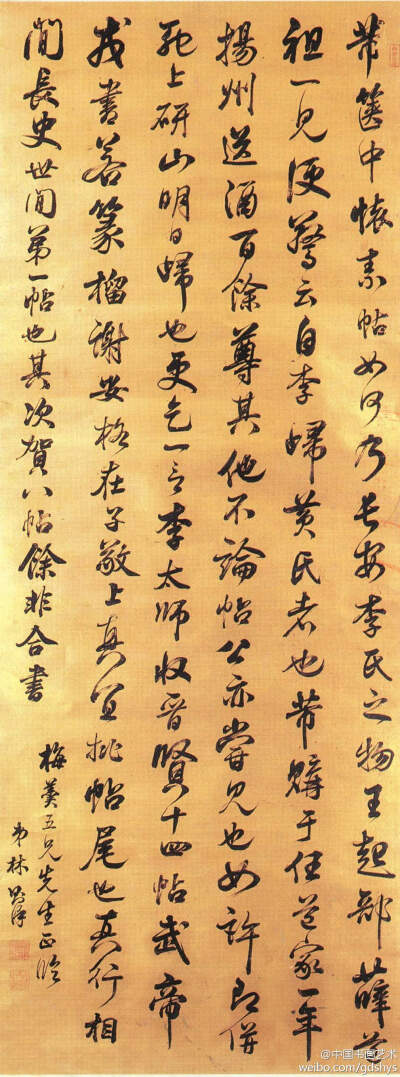 芾篋中懷素帖如何乃長安李氏之物王起部薛道
祖一見便驚云自李歸黃氏者也芾購于任道家一年
揚州送酒百餘尊其他不論帖公亦嘗見也如許即併
馳上研山明日歸也更乞一言李太師收晉賢十四帖武帝
戎書若篆榴謝安格在子敬上真宜批帖尾也真行相
間長史世間第一帖也其次賀八帖餘非合書
梅羹五兄先生正臨
弟林則徐
@中国书画艺术
weibo.com/gdshys